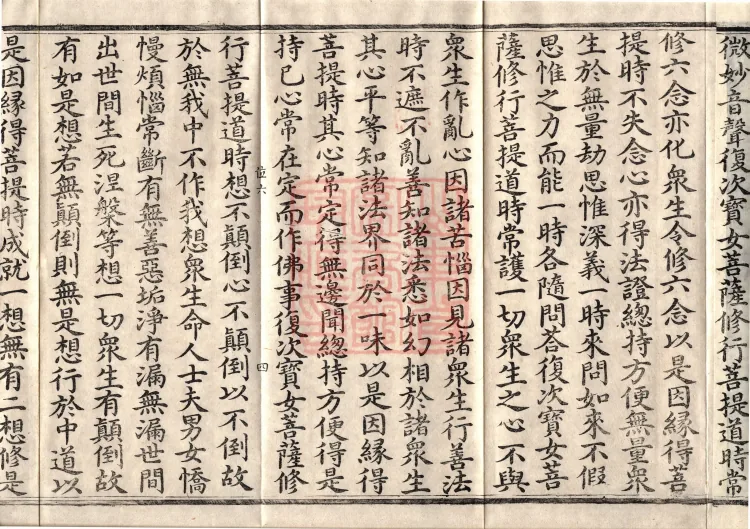 微妙音聲復次寶女菩薩修行菩提道時常
修六念亦化衆生令修六念以是因緣得菩
提時不失念心亦得法證總持方便無量衆
生於無量劫思惟深義一時來問如來不假
思惟之力而能一時各隨問荅復次寶女菩
薩修行菩提道時常護一切衆生之心不與
衆生作亂心因諸苦惱因見諸衆生行善法
時不遮不亂善知諸法悉如幻相於諸衆生
其心平等知諸法界同於一味以是因緣得
菩提時其心常定得無邊聞總持方便得是
持已心常在定而作佛事復次寶女菩薩修
六
四
行菩提道時想不顛倒心不顛倒以不倒故
於無我中不作我想衆生命人士夫男女憍
慢煩惱常斷有無善惡垢淨有漏無漏世間
出世間生死涅槃等想一切衆生有顛倒故
有如是想若無顛倒則無是想行於中道以
是因緣得菩提時成就一想無有二想修是